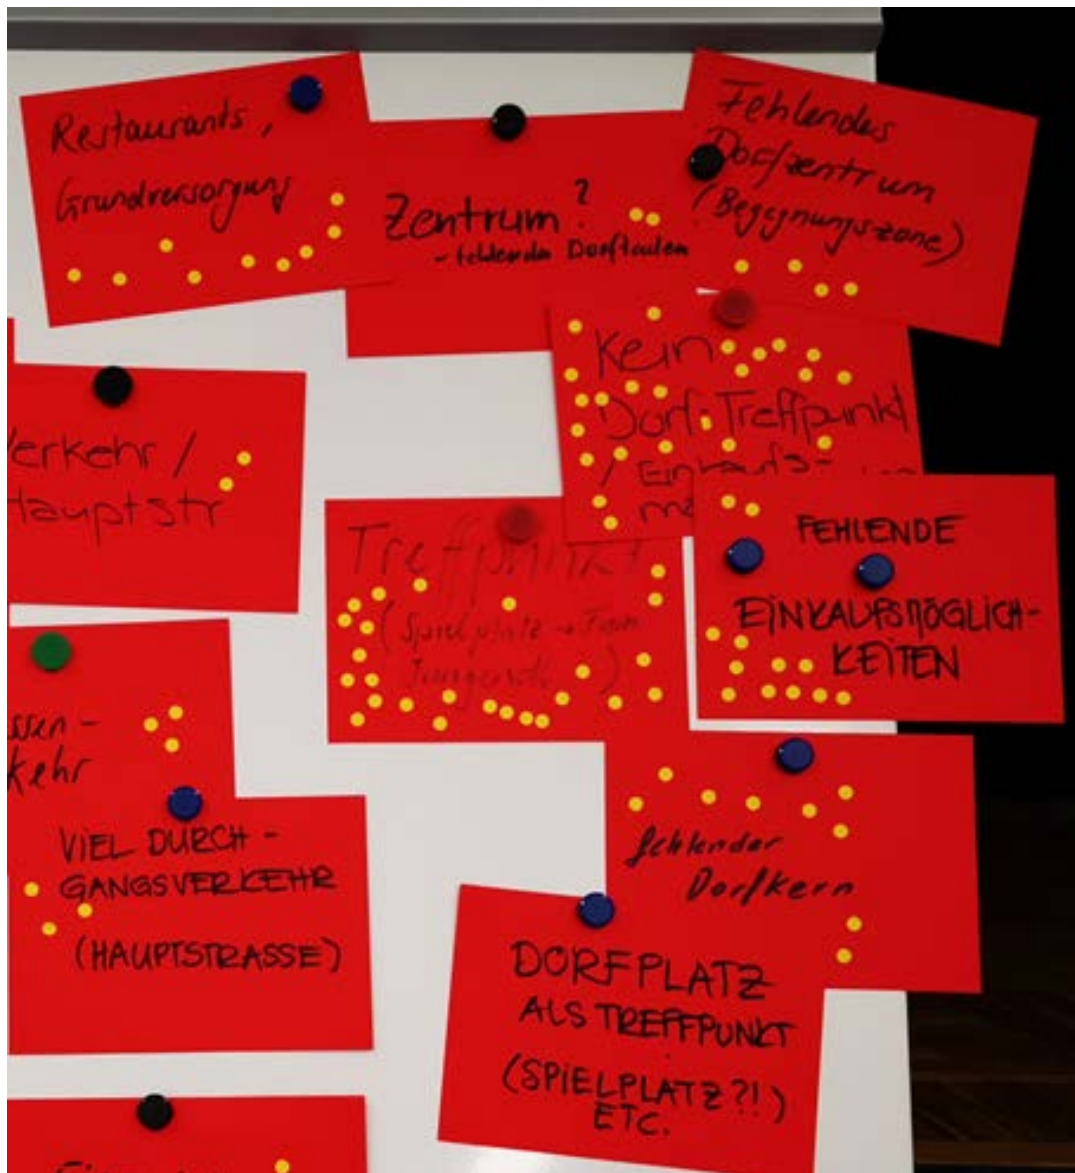 Restaurants,
Grundversorgung
Zentrum?
- fehlender
Fehlendes
Dorfzentrum
(Begegnungszone)
Kein
Dorf-Treffpunkt
/ Einkaufs-
erkehr /
auptstr
Treffpunkt
(Spielplatz
)
FEHLENDE
EINKAUFSMÖGLICH-
KEITEN
ssen-
kehr
VIEL DURCH-
GANGSVERKEHR
(HAUPTSTRASSE)
fehlender
Dorfkern
DORFPLATZ
ALS TREFFPUNKT
(SPIELPLATZ?!)
ETC.